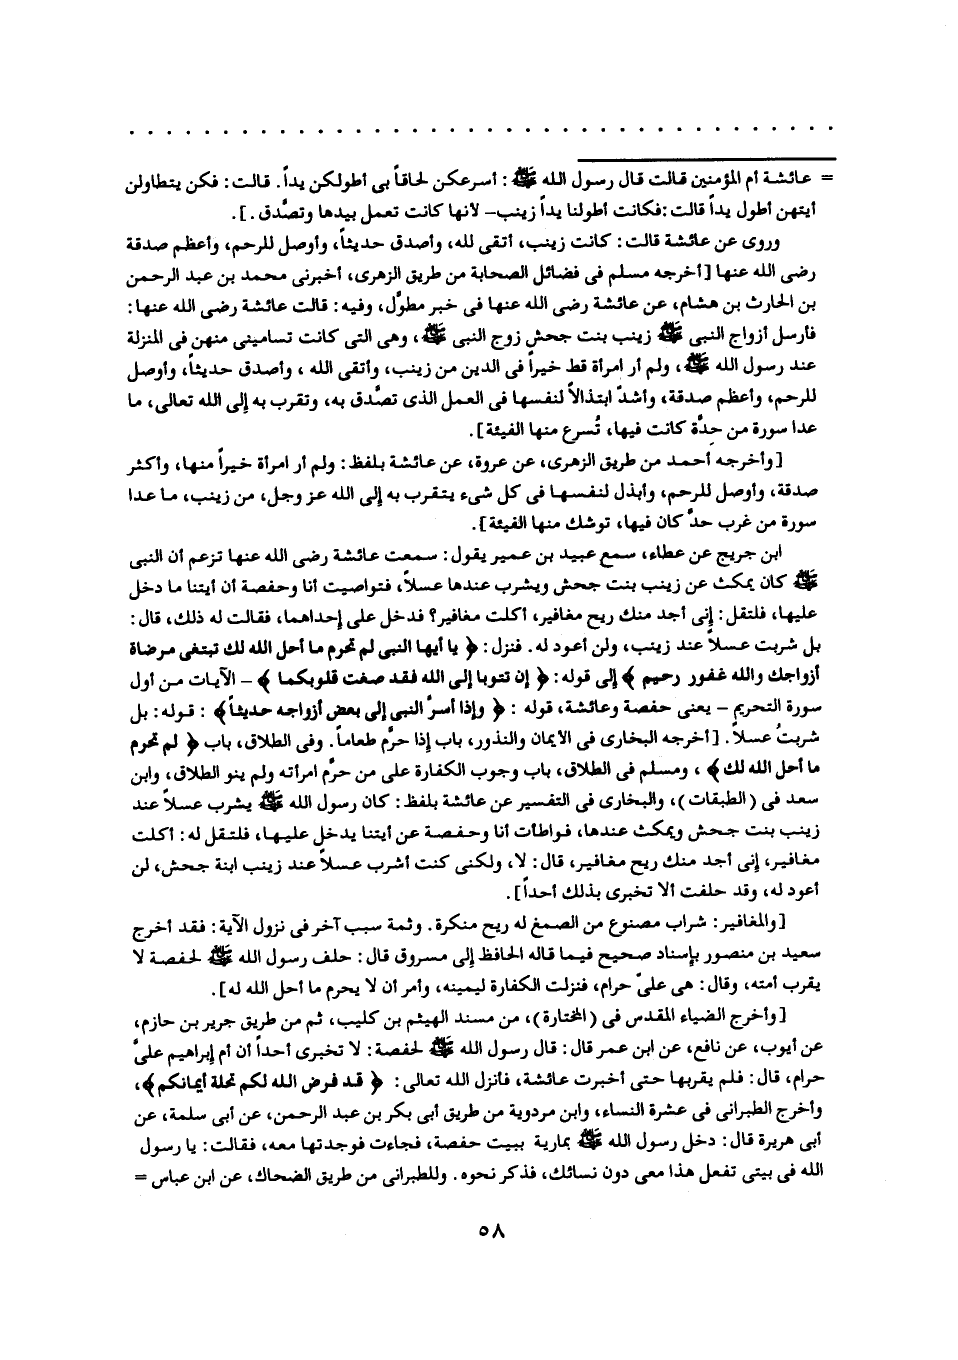 = عائشة أم المؤمنين قالت قال رسول الله ﷺ : أسرعكن لحاقاً بى أطولكن يداً. قالت: فكن يتطاولن
أيتهن أطول يداً قالت:فكانت أطولنا يداً زينب– لانها كانت تعمل بيدها وتصَّدق .].
وروى عن عائشة قالت: كانت زينب، أتقى لله، وأصدق حديثاً، وأوصل للرحم، وأعظم صدقة
رضى الله عنها [أخرجه مسلم فى فضائل الصحابة من طريق الزهرى، أخبرنى محمد بن عبد الرحمن
بن الحارث بن هشام، عن عائشة رضى الله عنها فى خبر مطوَّل، وفيه: قالت عائشة رضى الله عنها:
فأرسل أزواج النبى ﷺ زينب بنت جحش زوج النبى ﷺ، وهى التى كانت تسامينى منهن فى المنزلة
عند رسول الله ﷺ، ولم أر امرأة قط خيراً فى الدين من زينب، وأتقى الله ، وأصدق حديثاً، وأوصل
للرحم، وأعظم صدقة، وأشدّ ابتذالاً لنفسها فى العمل الذى تصَّدق به، وتقرب به إلى الله تعالى، ما
عدا سورة من حِدَّة كانت فيها، تُسرع منها الفيئة].
[وأخرجه أحمد من طريق الزهرى، عن عروة، عن عائشة بلفظ: ولم أر امرأة خيراً منها، وأكثر
صدقة، وأوصل للرحم، وأبذل لنفسها فى كل شىء يتقرب به إلى الله عز وجل، من زينب، ما عدا
سورة من غرب حدَّ كان فيها، توشك منها الفيئة].
ابن جريج عن عطاء، سمع عبيد بن عمير يقول: سمعت عائشة رضى الله عنها تزعم أن النبى
ﷺ كان يمكث عن زينب بنت جحش ويشرب عندها عسلاً، فتواصيت أنا وحفصة أن أيتنا ما دخل
عليها، فلتقل: إنى أجد منك ريح مغافير، أكلت مغافير؟ فدخل على إحداهما، فقالت له ذلك، قال:
بل شربت عسلاً عند زينب، ولن أعود له. فنزل: ﴿ يا أيها النبى لم تحرم ما أحل الله لك تبتغى مرضاة
أزواجك والله غفور رحيم ﴾ إلى قوله: ﴿ إن تتوبا إلى الله فقد صغت قلوبكما ﴾ – الآيات من أول
سورة التحريم – يعنى حفصة وعائشة، قوله : ﴿ وإذا أسرَّ النبى إلى بعض أزواجه حديثاً﴾ : قوله: بل
شربتُ عسلاً. [أخرجه البخارى فى الايمان والنذور، باب إذا حرَّم طعاماً. وفى الطلاق، باب ﴿ لم تحرم
ما أحل الله لك﴾ ، ومسلم فى الطلاق، باب وجوب الكفارة على من حرَّم امرأته ولم ينو الطلاق، وابن
سعد فى (الطبقات)، والبخارى فى التفسير عن عائشة بلفظ: كان رسول الله ﷺ يشرب عسلاً عند
زينب بنت جحش ويمكث عندها، فواطأت أنا وحفصة عن أيتنا يدخل عليها، فلتقل له: أكلت
مغافير، إنى أجد منك ريح مغافير، قال: لا، ولكنى كنت أشرب عسلاً عند زينب ابنة جحش، لن
أعود له، وقد حلفت ألا تخبرى بذلك أحداً].
[والمغافير: شراب مصنوع من الصمغ له ريح منكرة. وثمة سبب آخر فى نزول الآية: فقد أخرج
سعيد بن منصور بإسناد صحيح فيما قاله الحافظ إلى مسروق قال: حلف رسول الله ﷺ لحفصة لا
يقرب أمته، وقال: هى علىّ حرام، فنزلت الكفارة ليمينه، وأمر أن لا يحرم ما أحل الله له].
[وأخرج الضياء المقدس فى (المختارة)، من مسند الهيثم بن كليب، ثم من طريق جرير بن حازم،
عن أيوب، عن نافع، عن ابن عمر قال: قال رسول الله ﷺ لحفصة: لا تخبرى أحداً أن أم إبراهيم علىَّ
حرام، قال: فلم يقربها حتى أخبرت عائشة، فأنزل الله تعالى: ﴿ قد فرض الله لكم تحلة أيمانكم﴾،
وأخرج الطبرانى فى عشرة النساء، وابن مردوية من طريق أبى بكر بن عبد الرحمن، عن أبى سلمة، عن
أبى هريرة قال: دخل رسول الله ﷺ بمارية ببيت حفصة، فجاءت فوجدتها معه، فقالت: يا رسول
الله فى بيتى تفعل هذا معى دون نسائك، فذكر نحوه. وللطبرانى من طريق الضحاك، عن ابن عباس =
٥٨